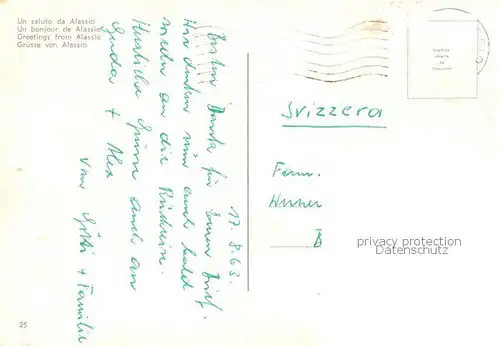 Un saluto da Alassio
Un bonjour de Alassio
Greetings from Alassio
Grüsse von Alassio
17.8.63.
Besten Dank für Euren Brief.
Wir denken nun auch bald
wieder an die
Herzliche Grüsse auch an
Guido + Alex
von Götti + Familie
Svizzera
Fam.
privacy protection
Datenschutz
25